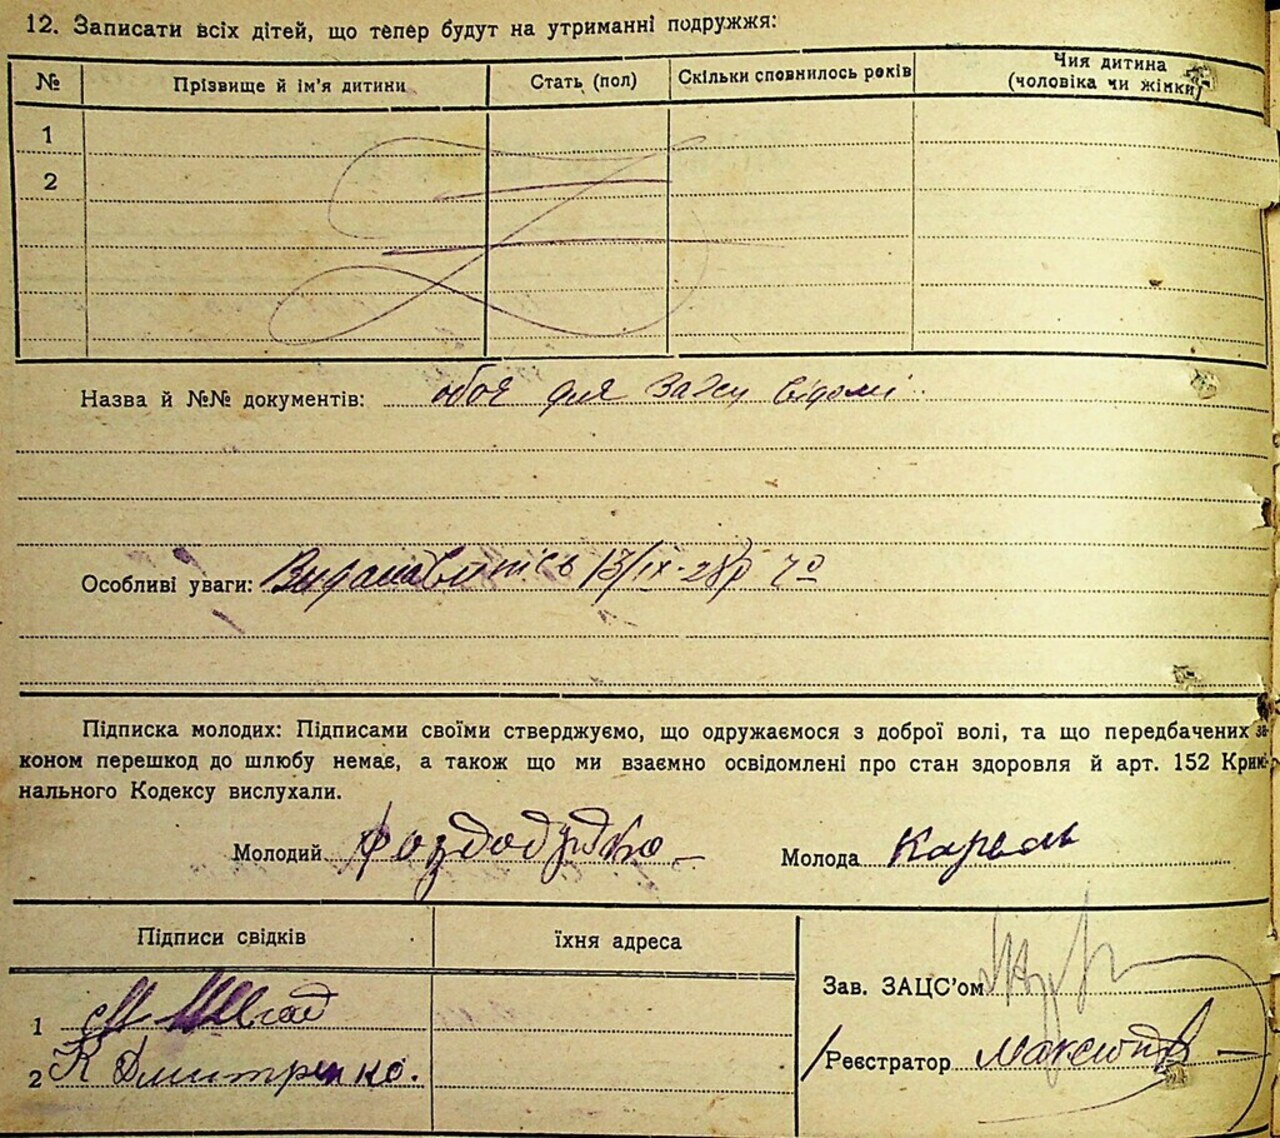 12. Записати всіх дітей, що тепер будут на утриманні подружжя:
№ Прізвище й ім'я дитини Стать (пол) Скільки сповнилось років Чия дитина (чоловіка чи жінки)
1
2
Назва й №№ документів: обоє для Загсу відомі
Особливі уваги: Видана Випись 13/IX-28р
Підписка молодих: Підписами своїми стверджуємо, що одружаємося з доброї волі, та що передбачених за-
коном перешкод до шлюбу немає, а також що ми взаємно освідомлені про стан здоровля й арт. 152 Кримі-
нального Кодексу вислухали.
Молодий Молода Король
Підписи свідків їхня адреса
Зав. ЗАЦС'ом
1 М
2 К Дмитренко.
Реєстратор